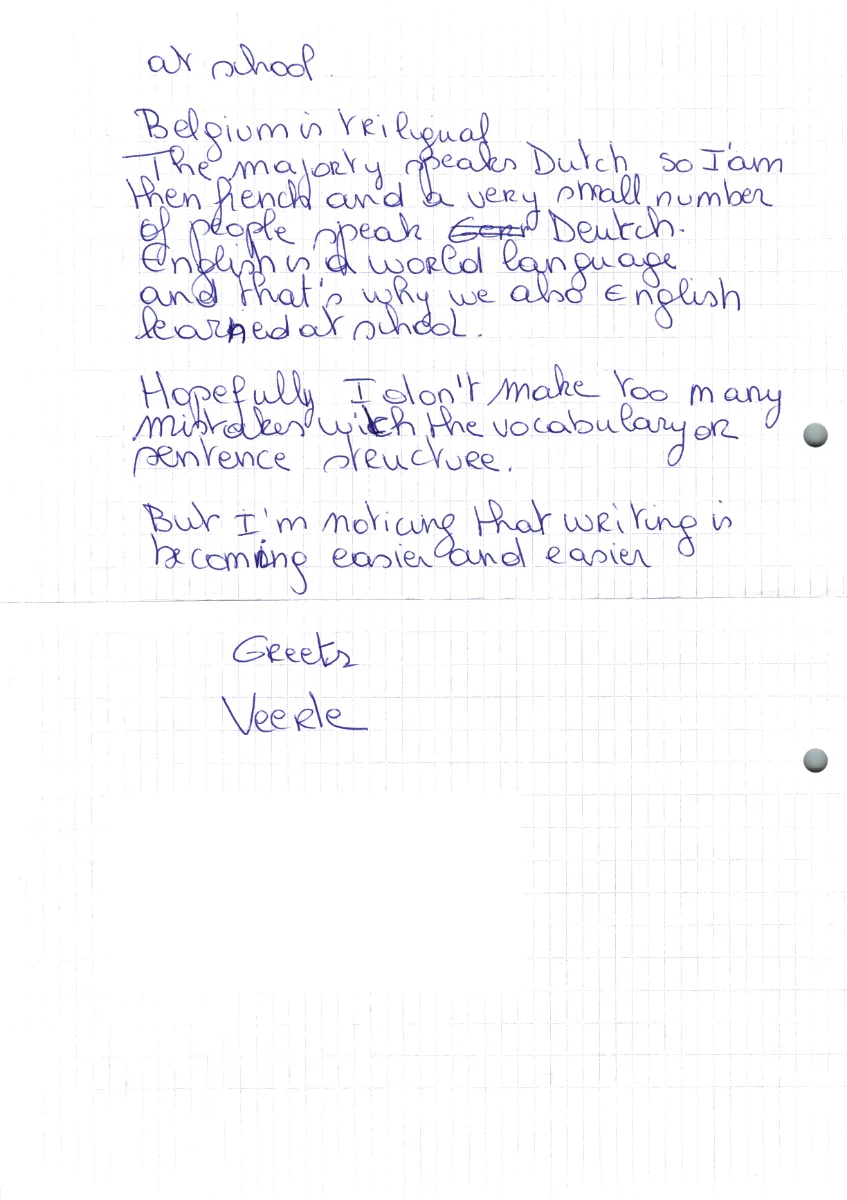 at school
Belgium is triligual
The majorty speaks Dutch so I'am
then fiench and a very small number
of people speak Deutch.
English is a world language
and that's why we also English
learned at school.
Hopefully I don't make too many
mistakes with the vocabulary or
sentence structure.
But I'm noticing that writing is
becoming easier and easier
Greets
Veerle